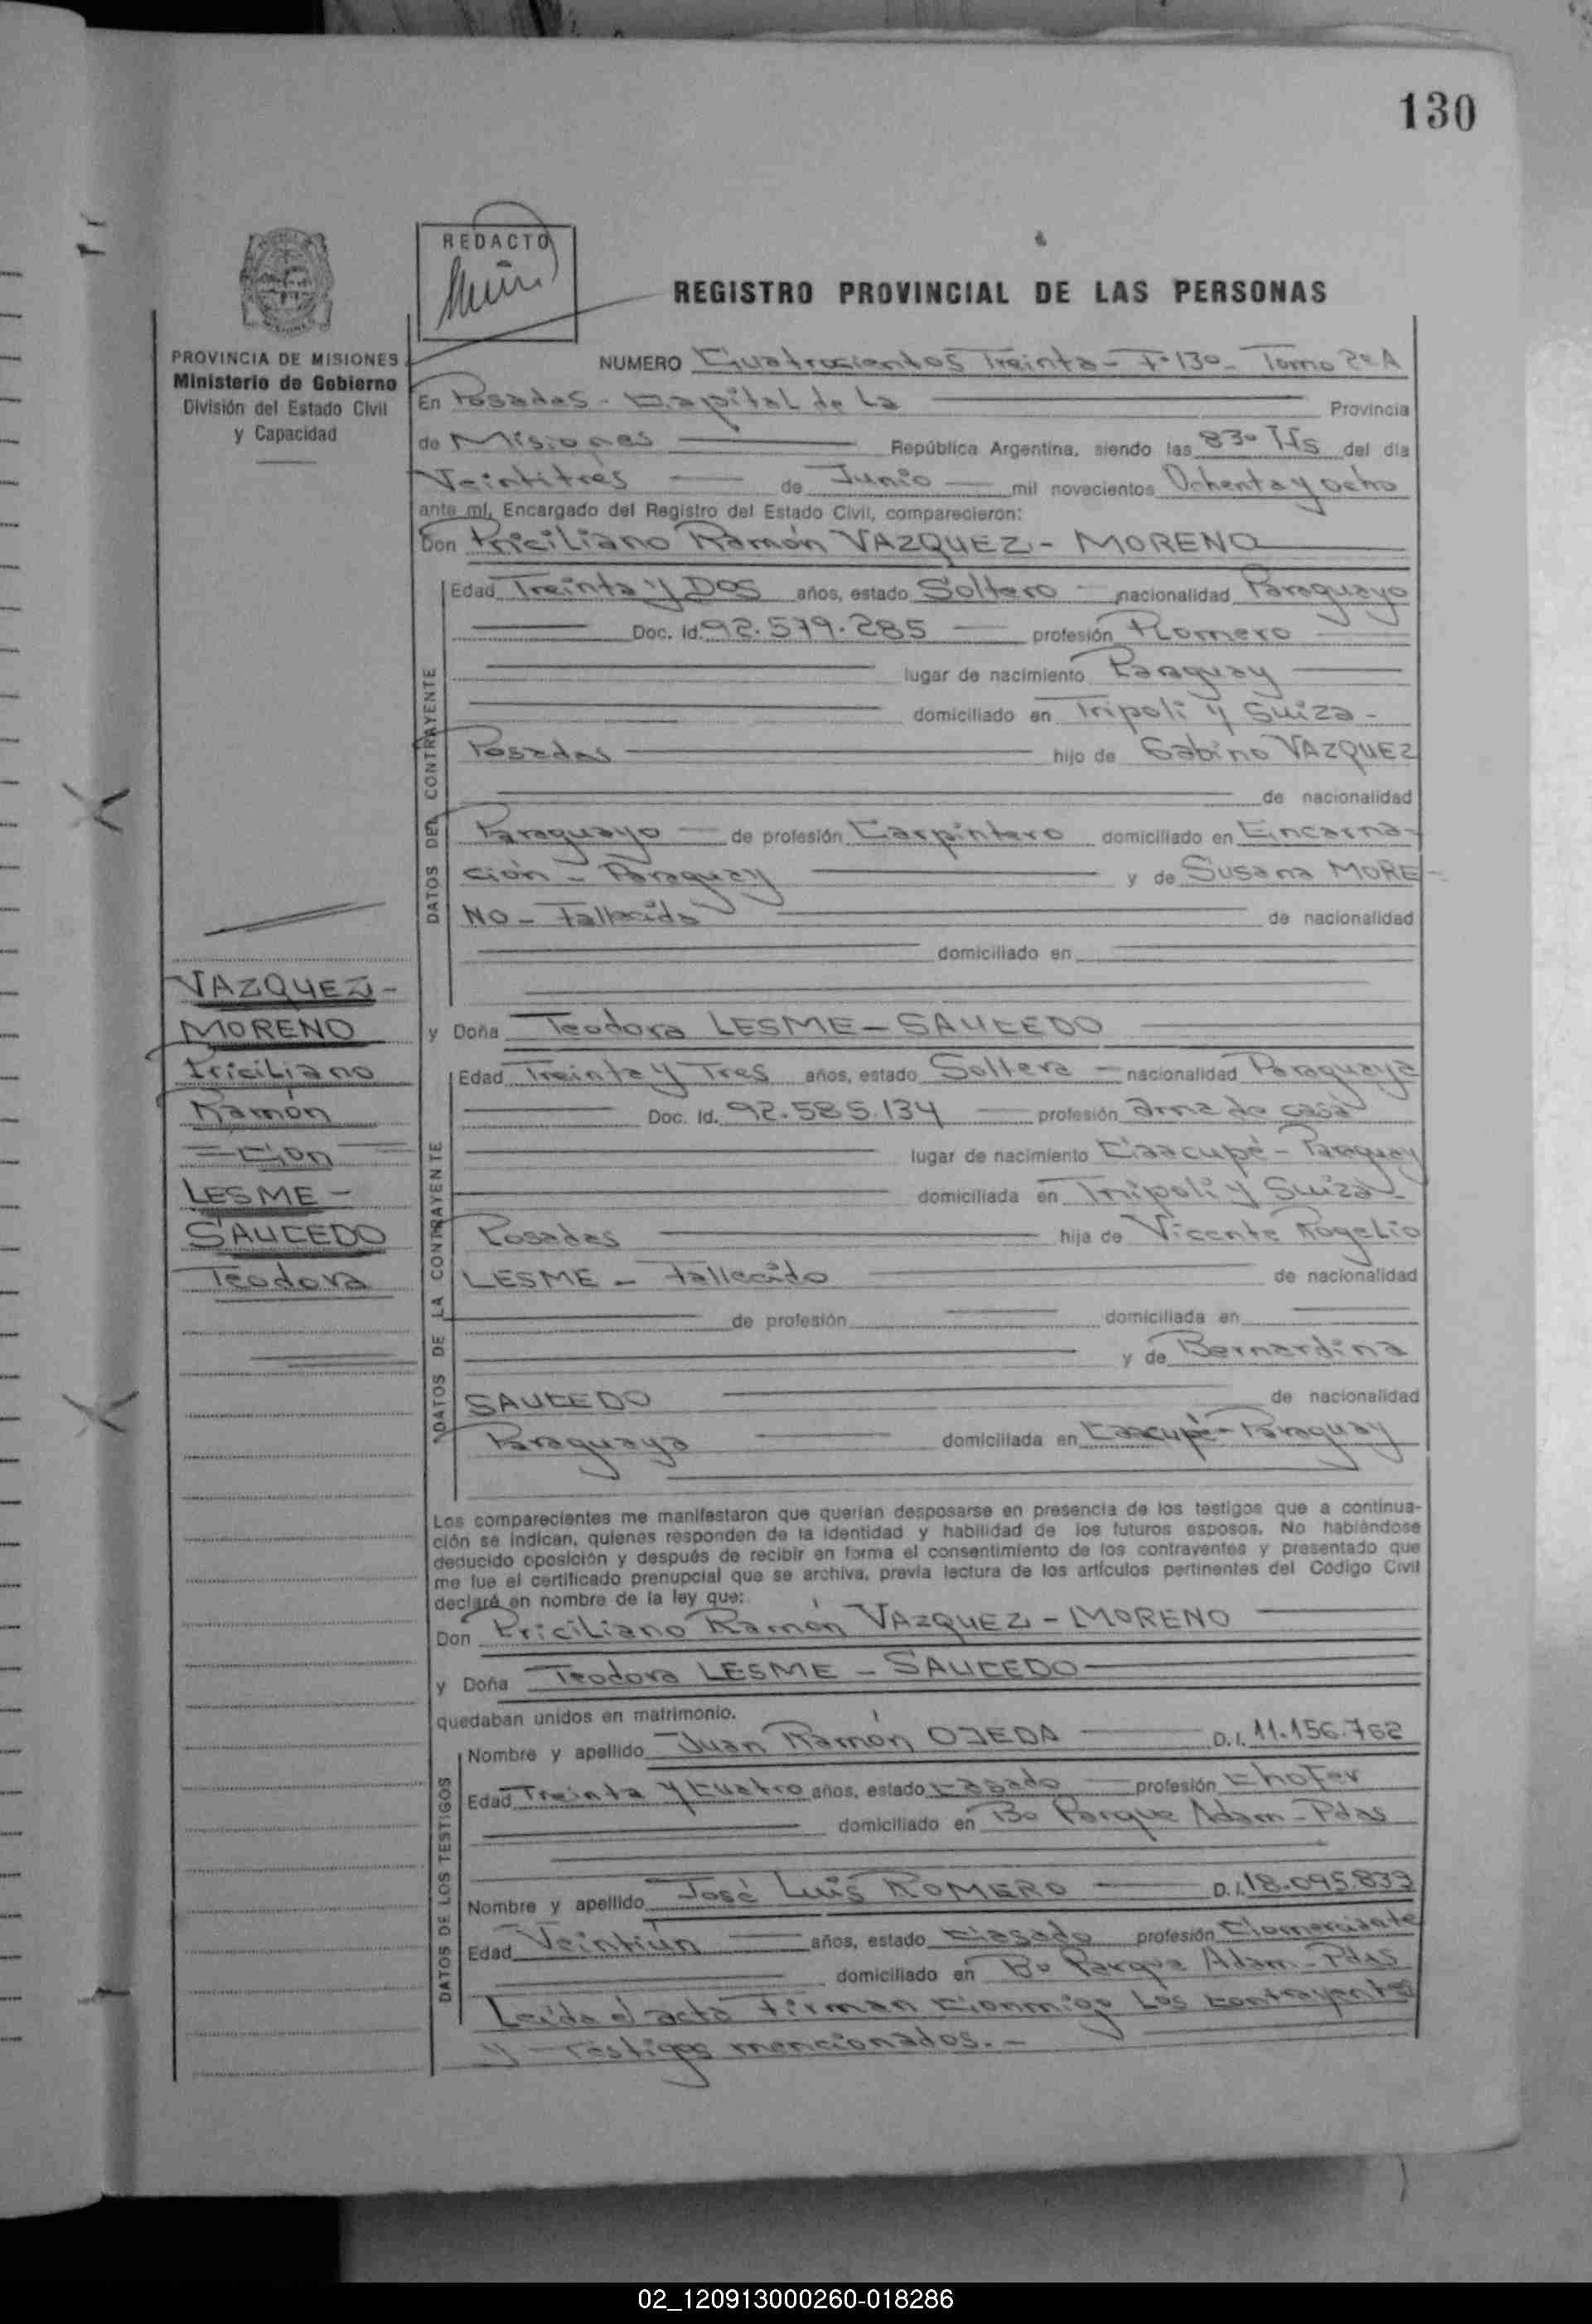 130
REDACTO
REGISTRO PROVINCIAL DE LAS PERSONAS
PROVINCIA DE MISIONES
Ministerio de Gobierno
División del Estado Civil
y Capacidad
NUMERO Cuatrocientos Treinta - Fº 130 - Tomo 2º A
En Posadas - Capital de La Provincia
de Misiones República Argentina, siendo las 8 30 Hs del día
Veintitres de Junio mil novecientos Ochenta y ocho
ante mí, Encargado del Registro del Estado Civil, comparecieron:
Don Priciliano Ramón VAZQUEZ - MORENO
DATOS DEL CONTRAYENTE
Edad Treinta y Dos años, estado Soltero nacionalidad Paraguayo
Doc. Id. 92.579.285 profesión Plomero
lugar de nacimiento Paraguay
domiciliado en Tripoli y Suiza -
Posadas hijo de Gabino VAZQUEZ
de nacionalidad
Paraguayo de profesión Carpintero domiciliado en Encarna-
ción - Paraguay y de Susana MORE-
NO - Fallecida de nacionalidad
domiciliado en
VAZQUEZ -
MORENO
Priciliano
Ramón
= Con =
LESME -
SAUCEDO
Teodora
y Doña Teodora LESME - SAUCEDO
DATOS DE LA CONTRAYENTE
Edad Treinta y Tres años, estado Soltera nacionalidad Paraguaya
Doc. Id. 92.585.134 profesión ama de casa
lugar de nacimiento Caacupé - Paraguay
domiciliada en Tripoli y Suiza -
Posadas hija de Vicente Rogelio
LESME - Fallecido de nacionalidad
de profesión domiciliada en
y de Bernardina
SAUCEDO de nacionalidad
Paraguaya domiciliada en Caacupé - Paraguay
Los comparecientes me manifestaron que querían desposarse en presencia de los testigos que a continua-
ción se indican, quienes responden de la identidad y habilidad de los futuros esposos. No habiéndose
deducido oposición y después de recibir en forma el consentimiento de los contrayentes y presentado que
me fue el certificado prenupcial que se archiva, previa lectura de los artículos pertinentes del Código Civil
declaré en nombre de la ley que:
Don Priciliano Ramón VAZQUEZ - MORENO
y Doña Teodora LESME - SAUCEDO
quedaban unidos en matrimonio.
DATOS DE LOS TESTIGOS
Nombre y apellido Juan Ramón OJEDA D.I. 11.156.762
Edad Treinta y Cuatro años, estado Casado profesión Chofer
domiciliado en Bo Parque Adam - Pdas
Nombre y apellido José Luis ROMERO D.I. 18.095.833
Edad Veintiun años, estado Casado profesión Comerciante
domiciliado en Bo Parque Adam - Pdas
Leída el acta Firman Conmigo Los contrayentes
y Testigos mencionados. -
02_120913000260-018286